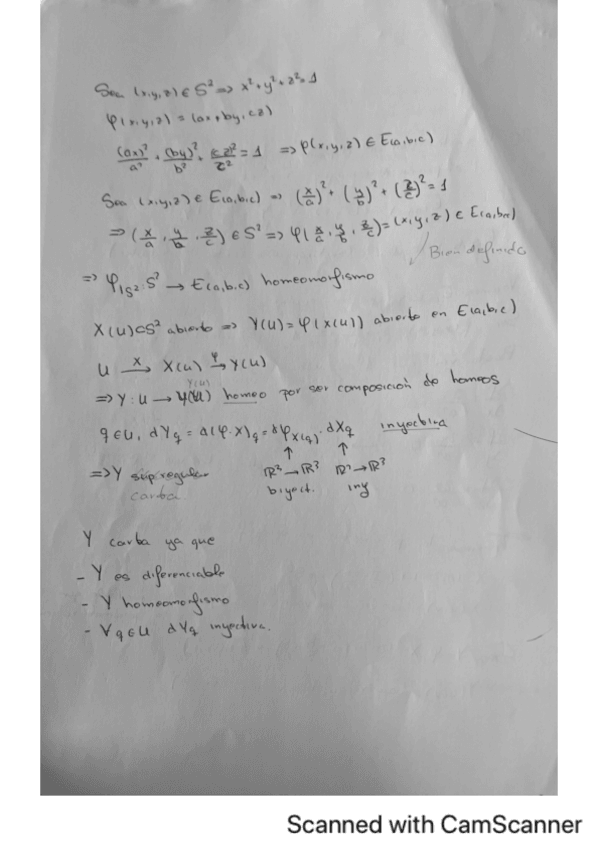 Sea (x,y,z) ∈ S² => x²+y²+z²=1
φ(x,y,z) = (ax, by, cz)
(ax)²/a² + (by)²/b² + (cz)²/c² = 1 => φ(x,y,z) ∈ E(a,b,c)
Sea (x,y,z) ∈ E(a,b,c) => (x/a)² + (y/b)² + (z/c)² = 1
=> (x/a, y/b, z/c) ∈ S² => φ(x/a, y/b, z/c) = (x,y,z) ∈ E(a,b,c)
Bien definida
=> φ|S²: S² → E(a,b,c) homeomorfismo
X(U)⊂S² abierto => Y(U) = φ(X(U)) abierto en E(a,b,c)
U →X X(U) →φ Y(U)
Y(U)
=> Y: U → homeo por ser composición de homeos
q∈U, dYq = d(φ∘X)q = dφX(q) · dXq inyectiva
↑ ↑
=> Y sup regular R³→R³ R²→R³
carta biyect. iny
Y carta ya que
- Y es diferenciable
- Y homeomorfismo
- ∀q∈U dYq inyectiva.
Scanned with CamScanner